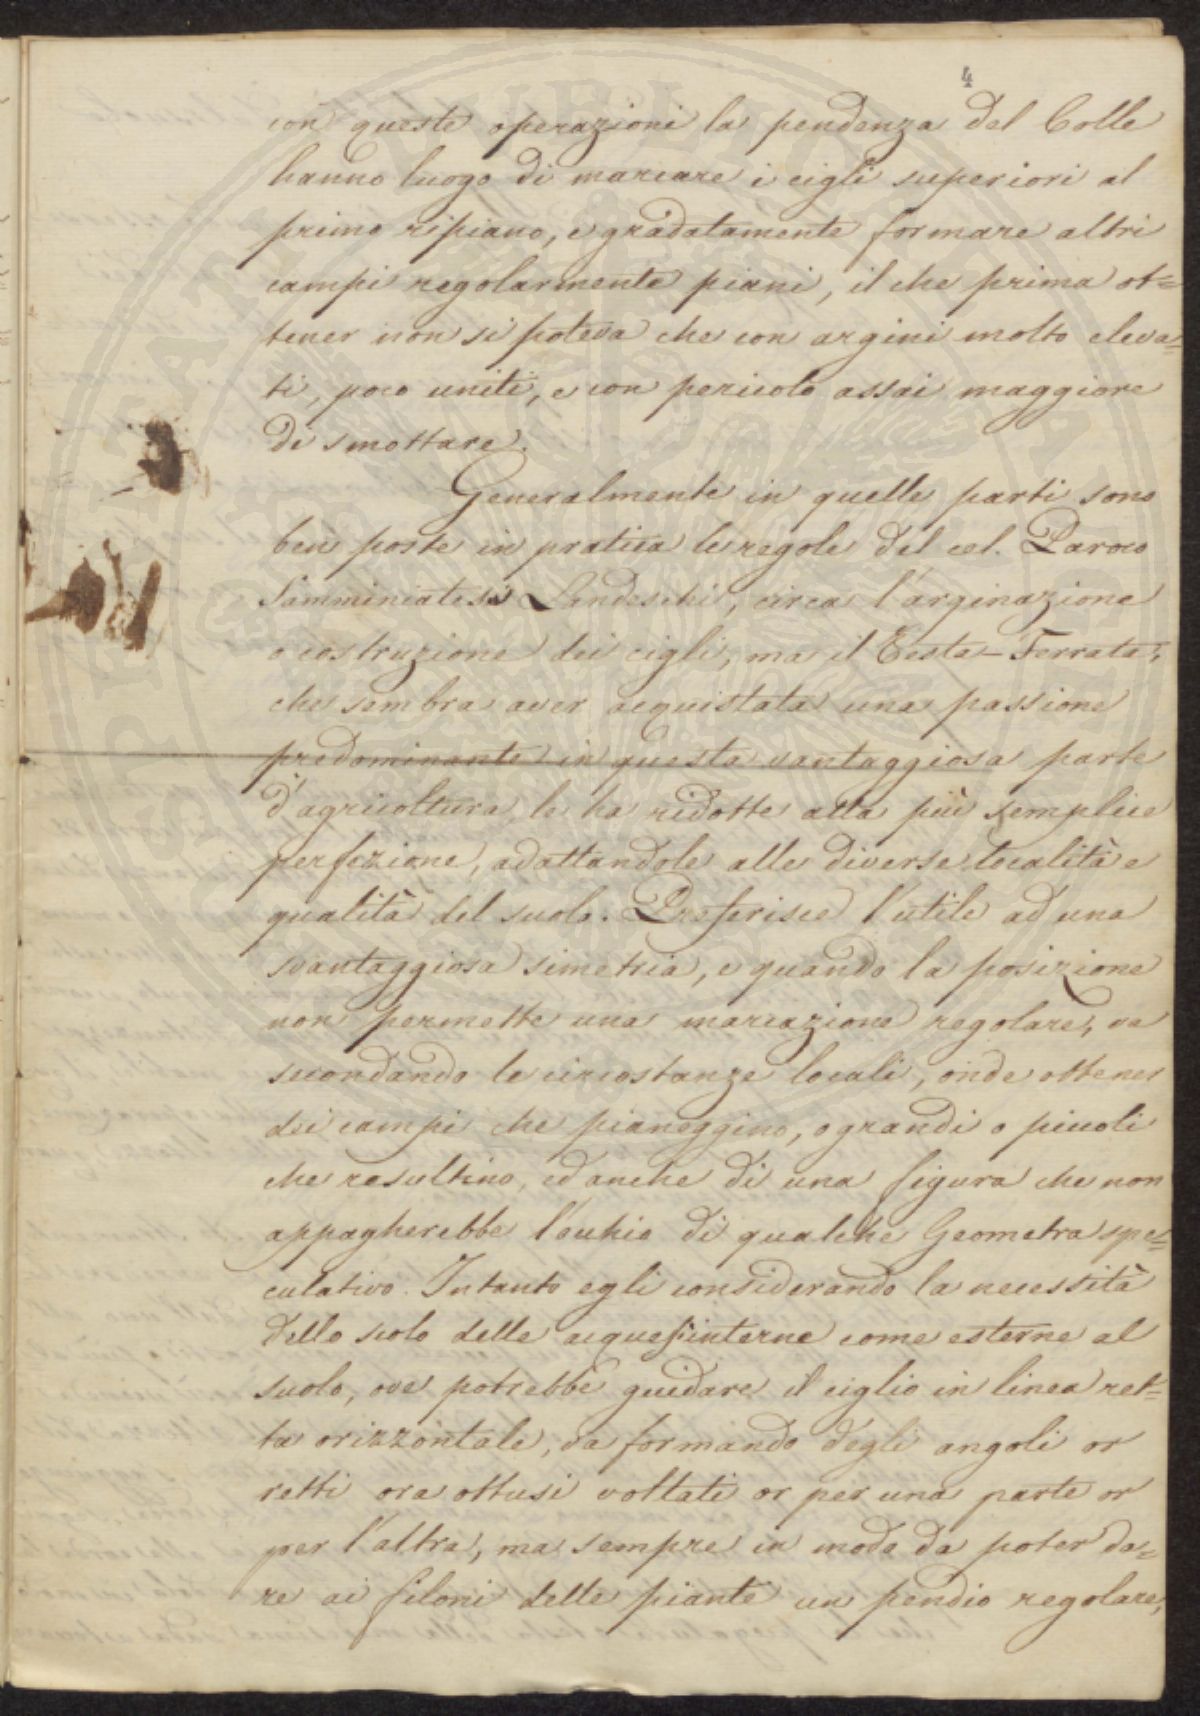 4
con queste operazioni la pendenza del Colle
hanno luogo di marcare i cigli superiori al
primo ripiano, e gradatamente formare altri
campi regolarmente piani, il che prima ot=
tener non si poteva che con argini molto eleva=
ti, poco uniti, e con pericolo assai maggiore
di smottare.
Generalmente in quelle parti sono
ben poste in pratica le regole del cel. Paroco
Samminiatese Landeschi, circa l'arginazione
o costruzione dei cigli, ma il Testa-Ferrata,
che sembra aver acquistata una passione
predominante in questa vantaggiosa parte
d'agricoltura le ha ridotte alla più semplice
perfezione, adattandole alle diverse località e
qualità del suolo. Preferisce l'utile ad una
svantaggiosa simetria, e quando la posizione
non permette una marcazione regolare, va
secondando le circostanze locali, onde ottener
dei campi che pianeggino, o grandi o piccoli
che resultino, ed anche di una figura che non
appagherebbe l'occhio di qualche Geometra spe=
culativo. Intanto egli considerando la necessità
dello scolo delle acque sì interne come esterne al
suolo, ove potrebbe guidare il ciglio in linea ret=
ta orizzontale, va formando degli angoli or
retti ora ottusi voltati or per una parte or
per l'altra, ma sempre in modo da poter da=
re ai filoni delle piante un pendio regolare,